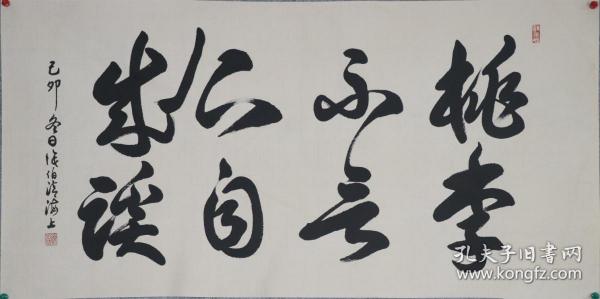 桃李
不言
下自
成蹊
己卯冬日徐伯清海上
孔夫子旧书网
www.kongfz.com